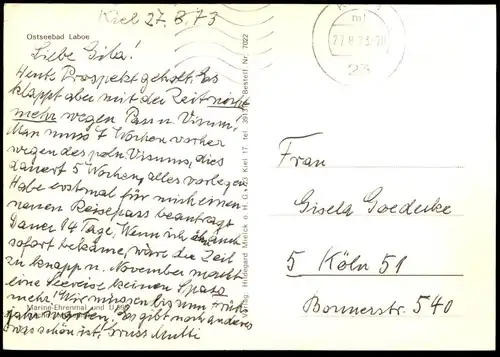 Kiel 27.8.73
Ostseebad Laboe
Liebe Gila!
Heute Prospekt geholt. Es
klappt aber mit der Zeit nicht
mehr wegen Pass u. Visum!
Man muss 7 Wochen vorher
wegen des poln. Visums, dies
dauert 5 Wochen, alles vorlegen
Habe erstmal für mich einen
neuen Reisepass beantragt
Dauer 14 Tage. Wenn ich auch
sofort bekäme, wäre die Zeit
zu knapp u. November macht
eine Seereise keinen Spass
mehr! Wir müssen bis zum Früh
jahr warten. Es gibt noch anderes
was schön ist! Gruss Mutti
Marine-Ehrenmal und U
Verlag: Hildegard Mielck o. H. G., 23 Kiel 17, tel. Bestell Nr. 7022
27.8.73
23
Frau
Gisela Goedecke
5 Köln 51
Bonnerstr. 540